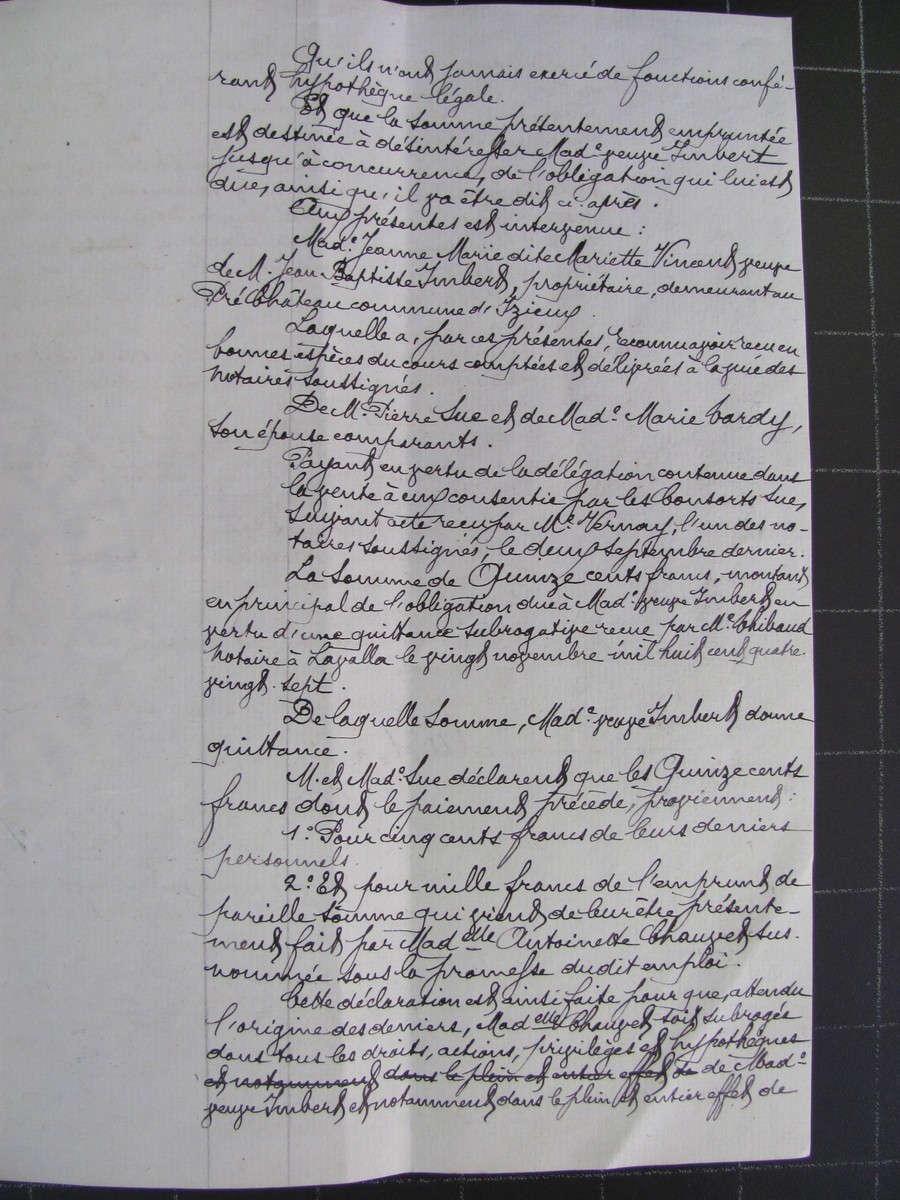 Qu'ils n'ont jamais exercé de fonctions confé-
rant hypothèque légale.
Et que la somme présentement empruntée
est destinée à désintéresser Made veuve Imbert
jusqu'à concurrence, de l'obligation qui lui est
due, ainsi qu'il va être dit ci-après.
Aux présentes est intervenue :
Made Jeanne Marie dite Mariette Vincent, veuve
de M. Jean-Baptiste Imbert, propriétaire, demeurant au
Pré Château commune d'Izieux.
Laquelle a, par ces présentes, reconnu avoir reçu en
bonnes espèces du cours comptées et délivrées à la vue des
notaires soussignés.
De M. Pierre Sue et de Made Marie Bardy,
son épouse comparants.
Payant en vertu de la délégation contenue dans
la vente à eux consentie par les consorts Sue,
suivant acte reçu par Me Vernay, l'un des no-
taires soussignés, le deux septembre dernier.
La somme de Quinze cents francs, montant
en principal de l'obligation due à Made veuve Imbert en
vertu d'une quittance subrogative reçue par Me Thibaud
notaire à Lavalla le vingt novembre mil huit cent quatre
vingt-sept.
De laquelle somme, Made veuve Imbert donne
quittance.
M. et Made Sue déclarent que les Quinze cents
francs dont le paiement précède, proviennent :
1o Pour cinq cents francs de leurs deniers
personnels.
2o Et pour mille francs de l'emprunt de
pareille somme qui vient de leur être présente-
ment fait par Madelle Antoinette Chauvet sus-
nommée sous la promesse dudit emploi.
Cette déclaration est ainsi faite pour que, attendu
l'origine des deniers, Madelle Chauvet soit subrogée
dans tous les droits, actions, privilèges et hypothèques
et notamment dans le plein et entier effet de de Made
veuve Imbert et notamment dans le plein et entier effet de